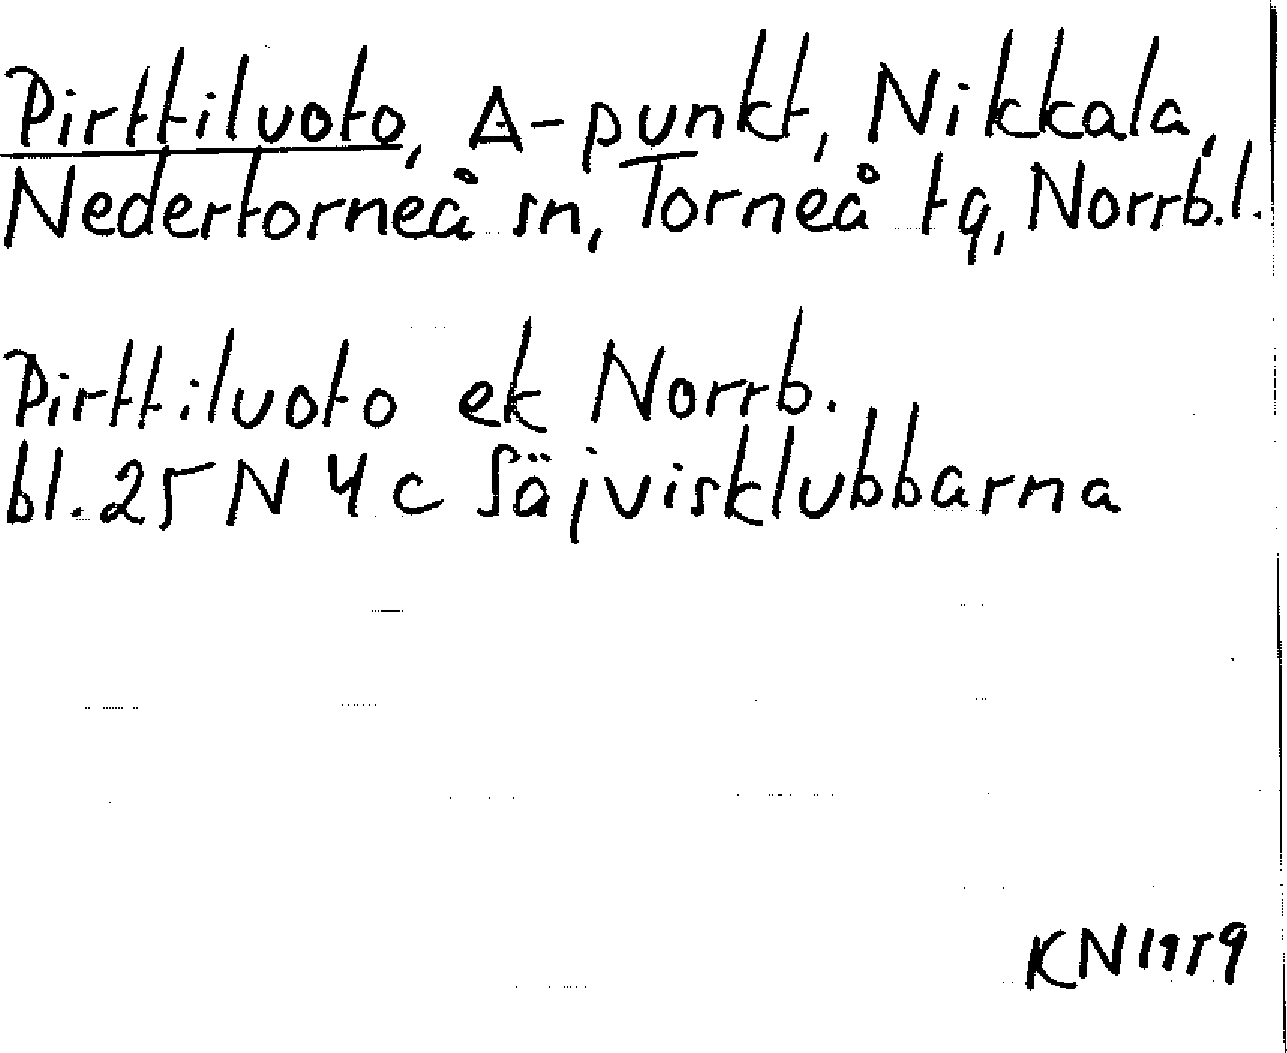 Pirttiluoto, A-punkt, Nikkala,
Nedertorneå sn, Torneå tg, Norrb.l.
Pirttiluoto ek Norrb.
bl. 25 N 4 c Säivisklubbarna
KN 1959